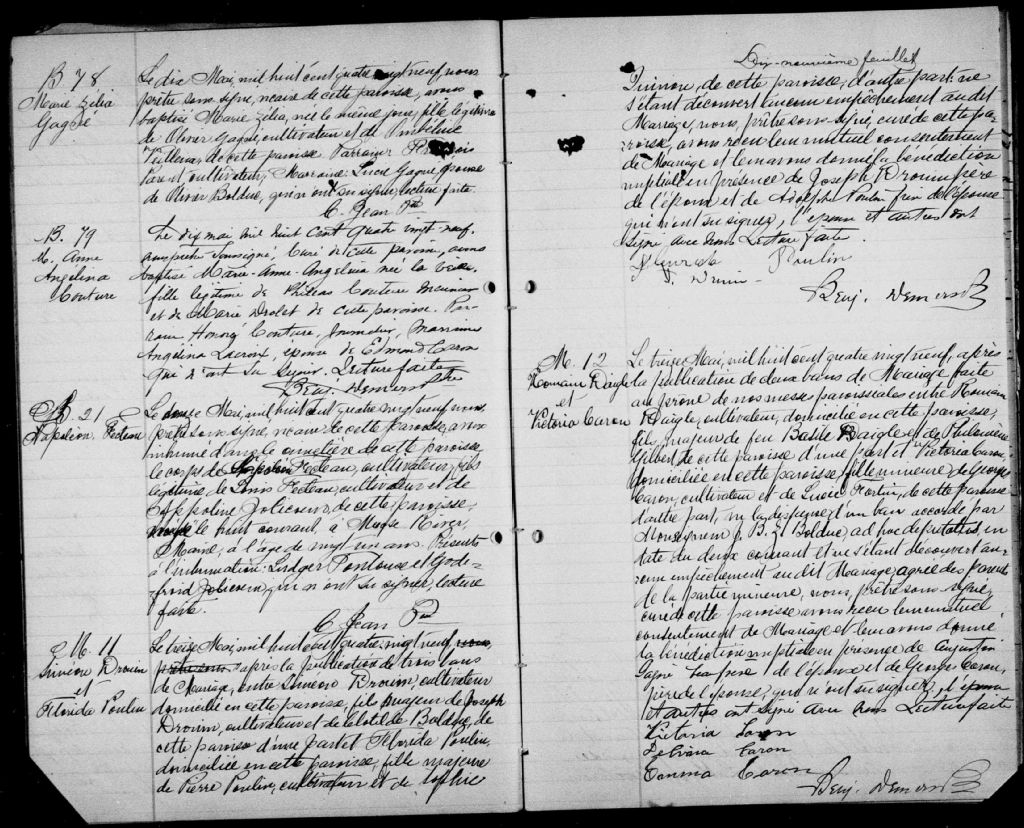 B. 78
Marie Zélia
Gagné
Le dix Mai, mil huit cent quatre vingt neuf, nous
prêtre sous signé, vicaire de cette paroisse, avons
baptisé Marie Zélia, née le même jour, fille légitime
de Olivier Gagné, cultivateur et de
de cette paroisse Parrain
cultivateur, Marraine Lucie Gagné, épouse
de Olivier Bolduc, qui n'ont su signer, lecture faite.
C. Jean Ptre
B. 79
M. Anne
Angelina
Couture
Le dix mai mil huit cent quatre vingt neuf,
nous prêtre soussigné, Curé de cette paroisse, avons
baptisé Marie-Anne-Angelina née la veille,
fille légitime de Philéas Couture meunier
et de Marie Drolet de cette paroisse. Par-
rain Honoré Couture, Marraine
Angelina Lacroix, épouse de Edmond Caron
qui n'ont su signer. Lecture faite
Benj. Demers Ptre
S. 21
Napoléon Fecteau
Le Mai, mil huit cent quatre vingt neuf nous
prêtre sous signé, vicaire de cette paroisse, avons
inhumé dans le cimetière de cette paroisse
le corps de Napoléon Fecteau, cultivateur, fils
légitime de Louis Fecteau, cultivateur et de
Appoline Jolicoeur, de cette paroisse,
le huit courant, à Magse River,
Maine, à l'âge de vingt un ans. Présents
à l'inhumation: Ludger Pontouse et Gode-
froid Jolicoeur, qui n'ont su signer, lecture
faite.
C Jean Ptre
M. 11
Siméon Drouin
et
Florida Poulin
Le treize Mai, mil huit cent quatre vingt neuf, nous
prêtre sous, après la publication de trois bans
de Mariage, entre Siméon Drouin, cultivateur
domicilié en cette paroisse, fils majeur de Joseph
Drouin, cultivateur et de Clotilde Bolduc, de
cette paroisse d'une part et Florida Poulin,
domiciliée en cette paroisse, fille majeure
de Pierre Poulin, cultivateur et de Sophie
Dix-neuvième feuillet
de cette paroisse, d'autre part: ne
s'étant découvert aucun empêchement au dit
Mariage, nous, prêtre sous-signé, curé de cette pa-
roisse, avons reçu leur mutuel consentement
de Mariage et leur avons donné la bénédiction
nuptiale en présence de Joseph Drouin père
de l'époux et de Adolphe Poulin frère de l'épouse
qui n'ont su signer, l'époux et autres ont
signé avec nous Lecture faite.
Poulin
Benj. Demers Ptre
M. 12
Romain Daigle
et
Victoria Caron
Le treize Mai, mil huit cent quatre vingt neuf, après
la publication de deux bans de Mariage faite
au prône de nos messes paroissiales entre Romain
Daigle, cultivateur, domicilié en cette paroisse,
fils majeur de feu Basile Daigle et de Philomène
Gilbert de cette paroisse d'une part et Victoria Caron,
domiciliée en cette paroisse, fille mineure de George
Caron, cultivateur et de Lucie Fortin, de cette paroisse
d'autre part, vu la dispense d'un ban accordé par
Monseigneur J. B. Z. Bolduc, ad hoc deputatus, en
date du deux courant et ne s'étant découvert au-
cun empêchement au dit Mariage, agréé des parents
de la partie mineure, nous, prêtre sous signé,
curé de cette paroisse avons reçu leur mutuel
consentement de Mariage et leur avons donné
la bénédiction nuptiale en présence de Augustin
Gagné beau frère de l'époux et de George Caron,
père de l'épouse, qui n'ont su signer, et
et autres ont signé avec nous Lecture faite
Victoria Caron
Delvina Caron
Emma Caron
Benj. Demers Ptre